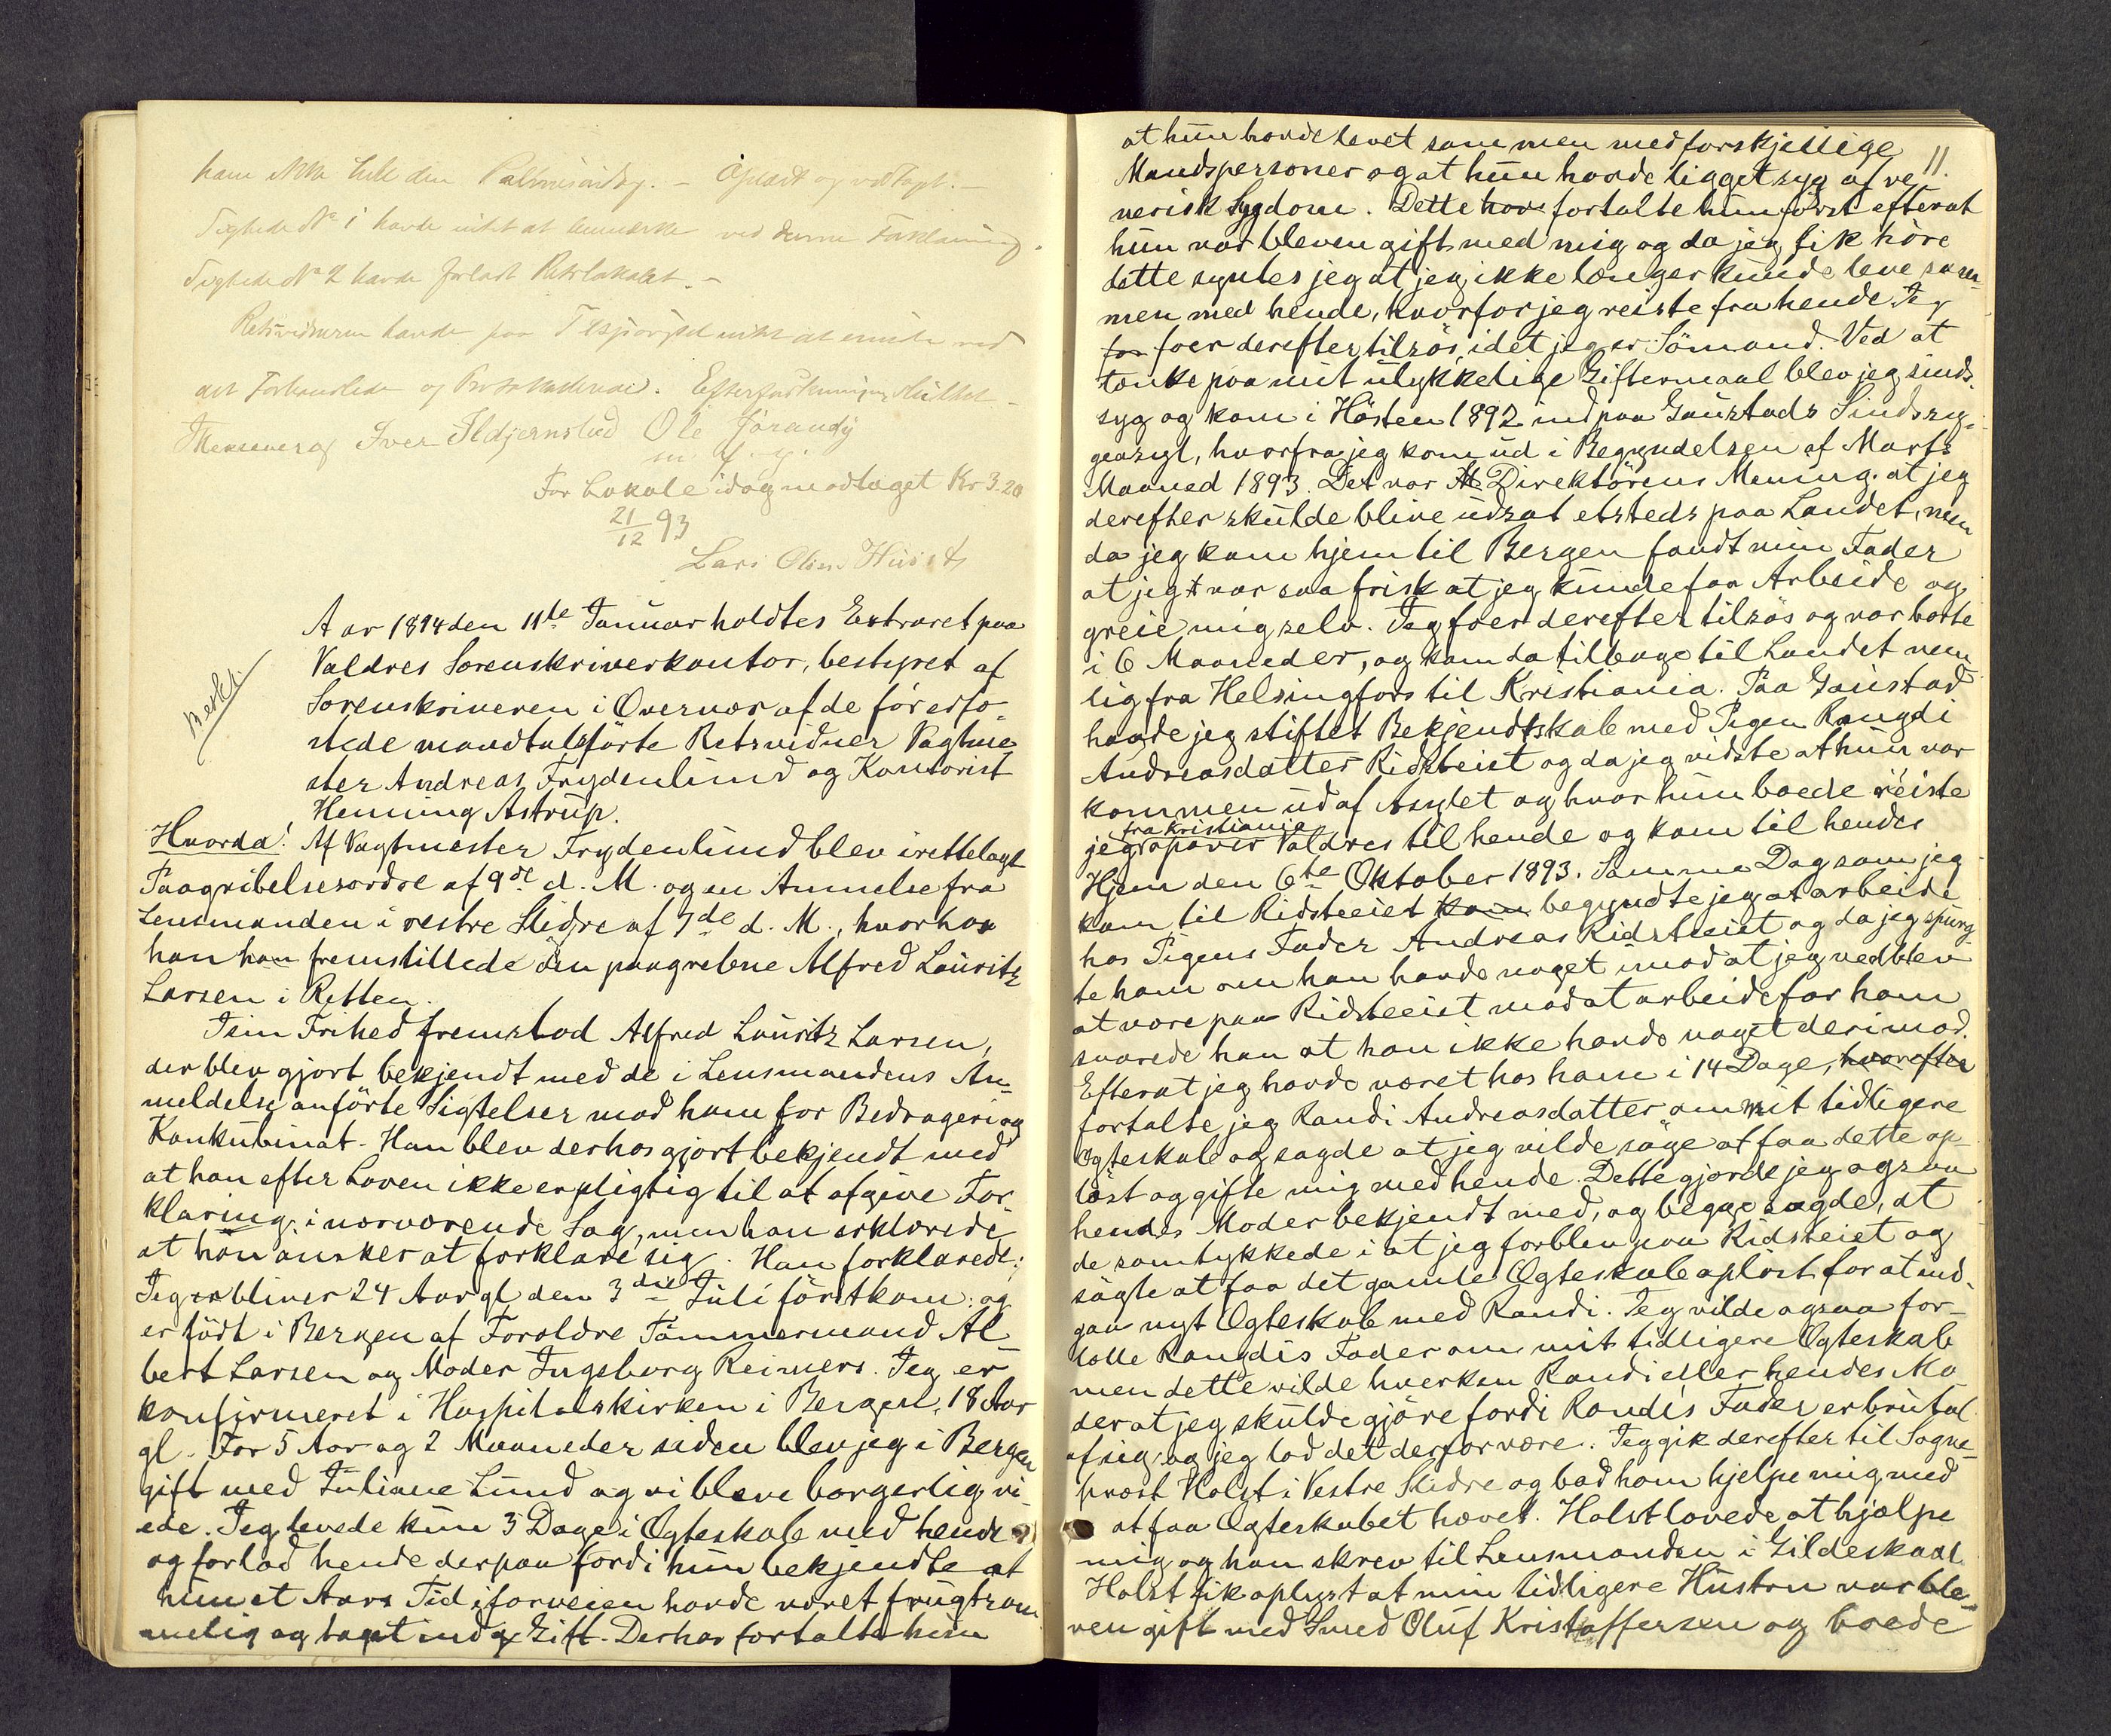 ham ikke hele den Palmesöndag. – Oplæst og vedtaget. –
Sigtede No 1 havde intet at bemærke ved denne Forklaring.
Sigtede No 2 havde forladt Retslokalet. –
Retsvidnerne havde paa Tilspörgsel intet at erindre ved
det Forhandlede og Protokollerede. Efterforskningen sluttet –
Iver Ildjernstad Ole Jørandby
m. f. p.
For Lokale idag modtaget Kr 3.20
21/12 93
Lars Olsen
Aar 1894 den 11te Januar holdtes Extraret paa
Valdres Sorenskriverkontor, bestyret af
Sorenskriveren i Overvær af de før edfo-
stede mandtalsförte Retsvidner Vagtme
ster Andreas Frydenlund og Kontorist
Henning Astrup.
Hvorda! Af Vagtmester Frydenlund blev irettelagt
Paagribelsesordre af 9de d. M. og en Anmelse fra
Lensmanden i vestre Slidre af 7de d. M., hvorhos
han han fremstillede den paagrebne Alfred Lauritz
Larsen i Retten.
I sin Frihed fremstod Alfred Lauritz Larsen,
der blev gjort bekjendt med de i Lensmandens An-
meldelse anförte Sigtelser mod ham for Bedrageri og
Konkubinat. Han blev derhos gjort bekjendt med
at han efter Loven ikke er pligtig til at afgive For-
klaring i nærværende Sag, men han erklærede
at han önsker at forklare sig. Han forklarede:
Jeg er bliver 24 Aar gl den 3die Juli förstkom: og
er födt i Bergen af Forældre Tömmermand Al-
bert Larsen og Moder Ingeborg Reimers. Jeg er
konfirmeret i Hospitalskirken i Bergen, 18 Aar
gl. For 5 Aar og 2 Maaneder siden blev jeg i Bergen
gift med Juliane Lund og vi bleve borgerlig vi-
ede. Jeg levede kun 3 Dage i Ægteskab med hende
og forlod hende derpaa fordi hun bekjendte at
hun et Aars Tid iforveien havde været frugtsom
melig og taget ind Gift. Derhos fortalte hun
11.
at hun havde levet sammen med forskjellige
Mandspersoner og at hun havde ligget syg af ve
nerisk Sygdom. Dette har fortalte hun först efterat
hun var bleven gift med mig og da jeg fik höre
dette syntes jeg at jeg ikke længer kunde leve sam
men med hende, hvorfor jeg reiste fra hende. Jeg
for foer derefter tilsös, idet jeg er Sömand. Ved at
tænke paa mit ulykkelige Giftermaal blev jeg sinds-
syg og kom i Hösten 1892 ind paa Gaustads Sindssyg-
geasyl, hvorfra jeg kom ud i Begyndelsen af Marts
Maaned 1893. Det var Direktörens Mening at jeg
derefter skulde blive udsat etsteds paa Landet, men
da jeg kom hjem til Bergen fandt min Fader
at jeg var saa frisk at jeg kunde faa Arbeide og
greie mig selv. Jeg foer derefter tilsös og var borte
i 6 Maaneder, og kom da tilbage til Landet nem
lig fra Helsingfors til Kristiania. Paa Gaustad
havde jeg stiftet Bekjendtskab med Pigen Rangdi
Andreasdatter Ridsteiet og da jeg vidste at hun var
kommen ud af Asylet og hvor hun boede reiste
fra Kristiania
jeg opover Valdres til hende og kom til hendes
Hjem den 6te Oktober 1893. Samme Dag som jeg
kom til Ridsteiet kom begyndte jeg at arbeide
hos Pigens Fader Andreas Ridsteiet og da jeg spurg-
te ham om han havde noget imod at jeg vedblev
at være paa Ridsteeiet mod at arbeide for ham
svarede han at han ikke havde noget derimod.
Efterat jeg havde været hos ham i 14 Dage, hvorefter
fortalte jeg Randi Andreasdatter om mit tidligere
Ægteskab og sagde at jeg vilde söge at faa dette op
löst og gifte mig med hende. Dette gjorde jeg ogsaa
hendes Moder bekjendt med, og begge sagde, at
de samtykkede i at jeg forblev paa Ridsteiet og
sögte at faa det gamle Ægteskab oplöst for at ind-
gaa nyt Ægteskab med Randi. Jeg vilde ogsaa for-
tælle Rangdis Fader om mit tidligere Ægteskab
men dette vilde hverken Randi eller hendes Mo
der at jeg skulde gjöre fordi Randis Fader er brutal
af sig og jeg lod det derfor være. Jeg gik derefter til Sogne-
præst Holst i Vestre Slidre og bad ham hjelpe mig med
at faa Ægteskabet hævet. Holst lovede at hjælpe
mig og han skrev til Lensmanden i Gildeskaal.
Holst fik oplyst at min tidligere Hustru var ble-
ven gift med Smed Oluf Kristoffersen og boede